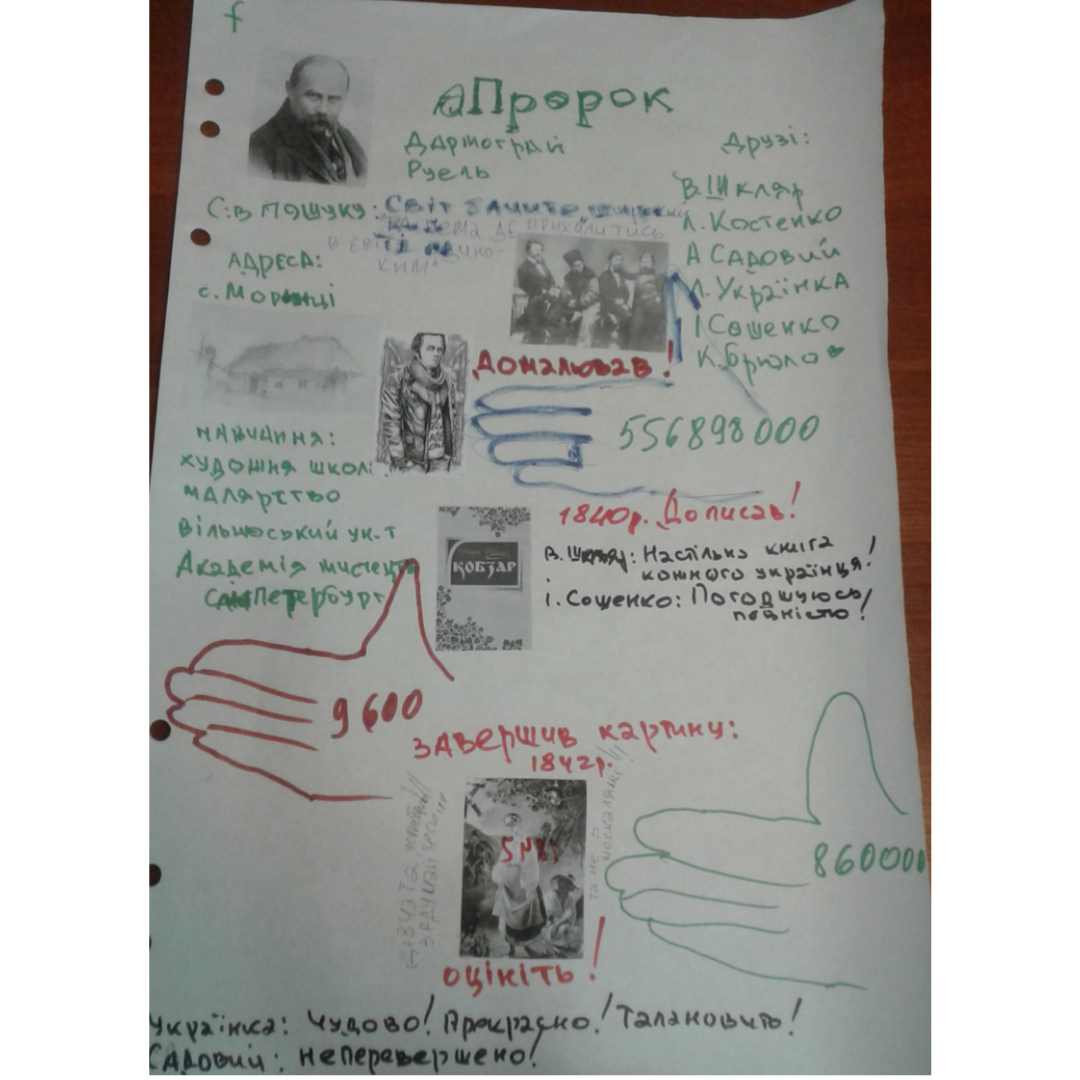 f
Пророк
Дармограй
Руель
Друзі:
В. Шкляр
Л. Костенко
А Садовий
Л. Українка
І Сошенко
К. Брюло
С:в пошуку: Світ
В світі
ким"
Адреса:
с. Моринці
Домалював!
556898000
Навчання:
художня школі
малярство
Вільнюський ун-т
Академія мистецтв
СанПетербург
1840р. Дописав!
КОБЗАР
В. Шкляр: Настільна книга
кожного українця!
І. Сошенко: Погоджуюсь
повністю!
9 600
Завершив картину:
1842р.
та не з
москалями!!
860000
Оцініть!
Українка: Чудово! Прекрасно! Талановито!
Садовий: Неперевершено!